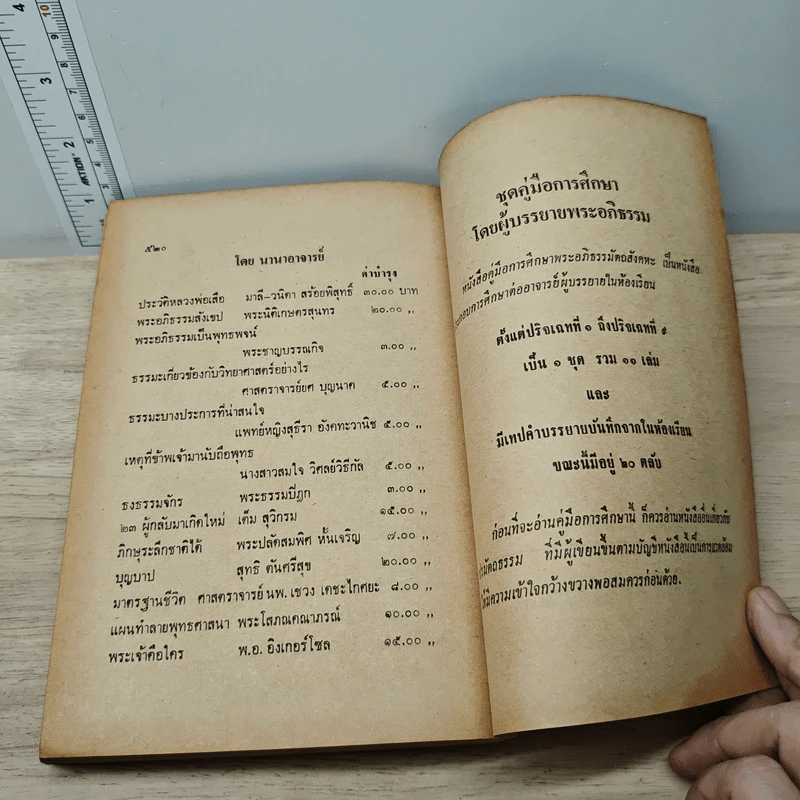 ๕๒๐
โดย นานาอาจารย์
ค่าบำรุง
ประวัติหลวงพ่อเสือ มาลี-วนิดา สร้อยพิสุทธิ์ ๓๐.๐๐ บาท
พระอภิธรรมสังเขป พระนิติเกษตรสุนทร ๒๐.๐๐ ,,
พระอภิธรรมเป็นพุทธพจน์
พระชาญบรรณกิจ ๓.๐๐ ,,
ธรรมะเกี่ยวข้องกับวิทยาศาสตร์อย่างไร
ศาสตราจารย์ยศ บุญนาค ๕.๐๐ ,,
ธรรมะบางประการที่น่าสนใจ
แพทย์หญิงสุธีรา อังคทะวานิช ๕.๐๐ ,,
เหตุที่ข้าพเจ้ามานับถือพุทธ
นางสาวสมใจ วิศลย์วิธีกัล ๕.๐๐ ,,
ธงธรรมจักร พระธรรมปิฎก ๓.๐๐ ,,
๒๓ ผู้กลับมาเกิดใหม่ เต็ม สุวิกรม ๑๕.๐๐ ,,
ภิกษุระลึกชาติได้ พระปลัดสมพิศ หั้นเจริญ ๗.๐๐ ,,
บุญบาป สุทธิ ตันศรีสุข ๒๐.๐๐ ,,
มาตรฐานชีวิต ศาสตราจารย์ นพ. เชวง เดชะไกศยะ ๘.๐๐ ,,
แผนทำลายพุทธศาสนา พระโสภณคณาภรณ์ ๑๐.๐๐ ,,
พระเจ้าคือใคร พ.อ. อิงเกอร์โซล ๑๕.๐๐ ,,
ชุดคู่มือการศึกษา
โดยผู้บรรยายพระอภิธรรม
หนังสือคู่มือการศึกษาพระอภิธรรมัตถสังคหะ เป็นหนังสือ
การศึกษาต่ออาจารย์ผู้บรรยายในห้องเรียน
ตั้งแต่ปริจเฉทที่ ๑ ถึงปริจเฉทที่ ๙
เป็น ๑ ชุด รวม ๑๑ เล่ม
และ
มีเทปคำบรรยายบันทึกจากในห้องเรียน
ขณะนี้มีอยู่ ๒๐ ตลับ
ก่อนที่จะอ่านคู่มือการศึกษานี้ ก็ควรอ่านหนังสืออื่นเกี่ยวกับ
ที่มีผู้เขียนขึ้นตามบัญชีหนังสือนี้เป็นการ
ให้มีความเข้าใจกว้างขวางพอสมควรก่อนด้วย.